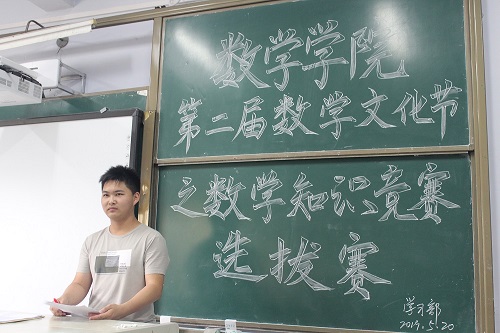 数学学院
第二届数学文化节
之数学知识竞赛
选拔赛
学习部
2015.5.20